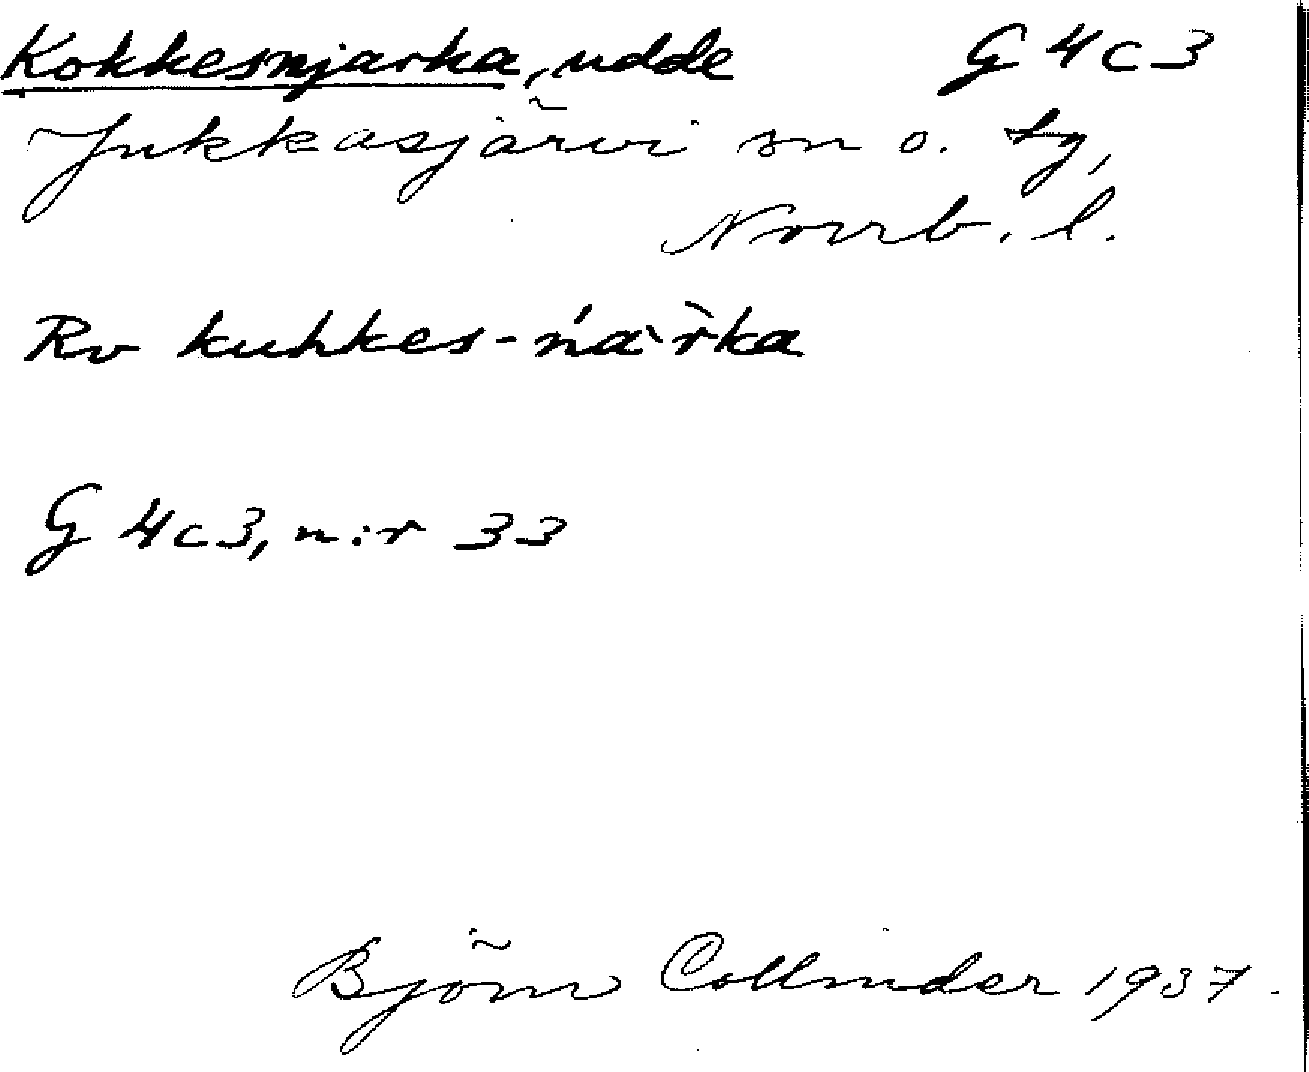 Kokkesnjarka, udde G 4 c 3
Jukkasjärvi sn o. tg,
Norrb. l.
Rv kuhkes-ńàr̀ka
G 4c3, n:r 33
Björn Collinder 1937.